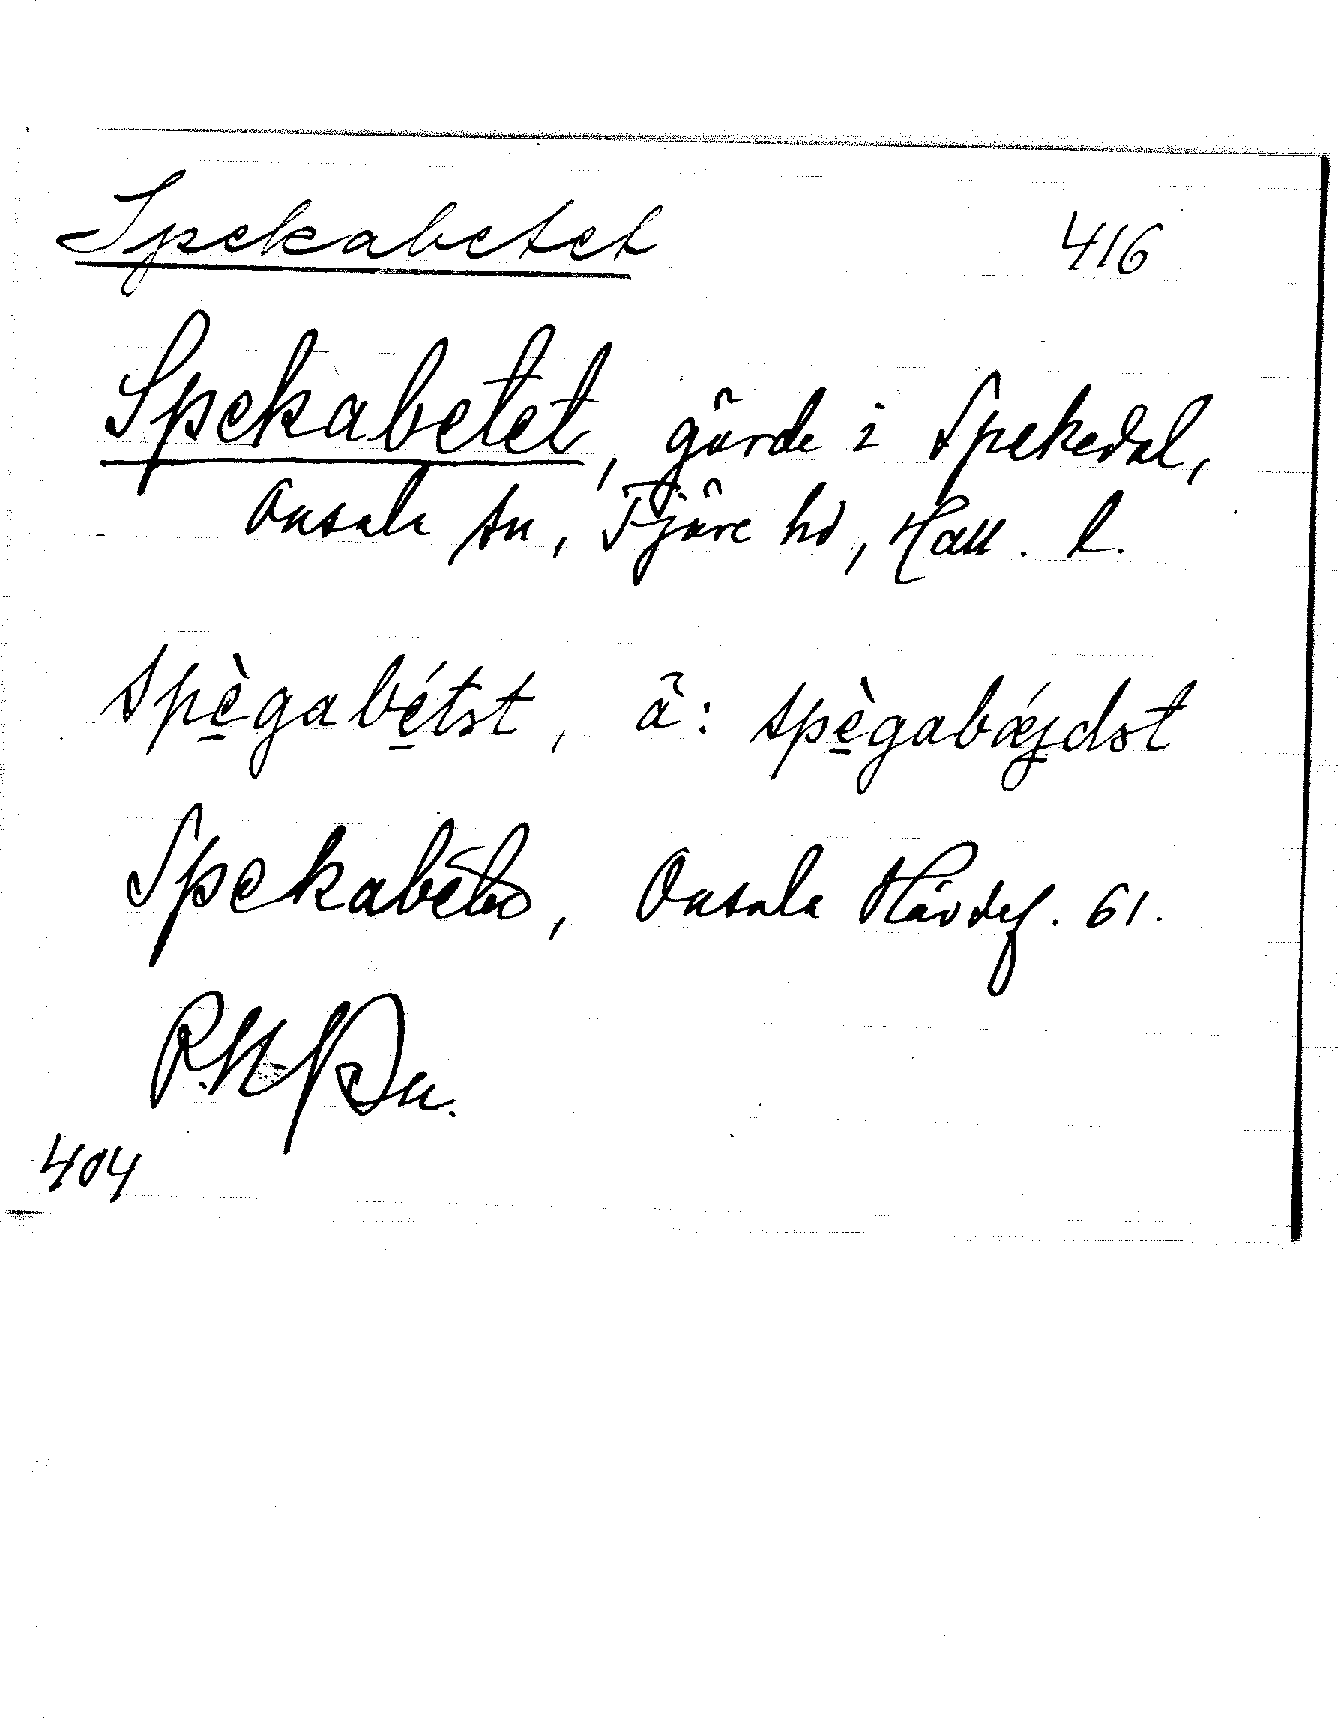 Spekabetet 416
Spekabetet, gärde i Spekedal,
Onsala sn, Fjäre hd, Hall. l.
spègabétət, ä: spègabǽjdət
Spekabéto, Onsala Hävdef. 61.
404